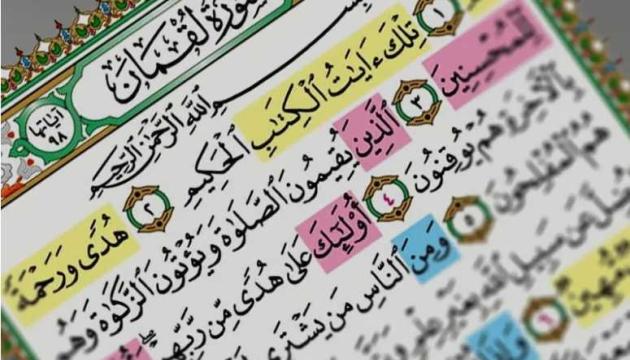 سُورَةُ لُقْمَان
آيَاتُهَا ٩٨
بِسْمِ ٱللَّهِ ٱلرَّحْمَٰنِ ٱلرَّحِيمِ
١ تِلْكَ ءَايَٰتُ ٱلْكِتَٰبِ ٱلْحَكِيمِ ٢ هُدًى وَرَحْمَةً
لِّلْمُحْسِنِينَ ٣ ٱلَّذِينَ يُقِيمُونَ ٱلصَّلَوٰةَ وَيُؤْتُونَ ٱلزَّكَوٰةَ وَهُم
بِٱلْءَاخِرَةِ هُمْ يُوقِنُونَ ٤ أُو۟لَٰٓئِكَ عَلَىٰ هُدًى مِّن رَّبِّهِمْ
هُمُ ٱلْمُفْلِحُونَ ٥ وَمِنَ ٱلنَّاسِ مَن يَشْتَرِى
عَن سَبِيلِ ٱللَّهِ بِغَيْرِ عِلْمٍ
مُّهِينٌ ٦ وَإِذَا